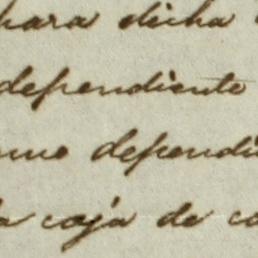 para dicha
dependiente
como dependi
la caja de co